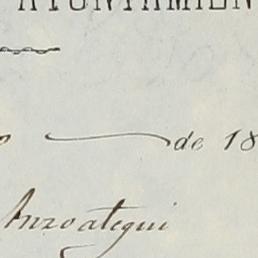 AYUNTAMIEN
de 18
Anzoategui